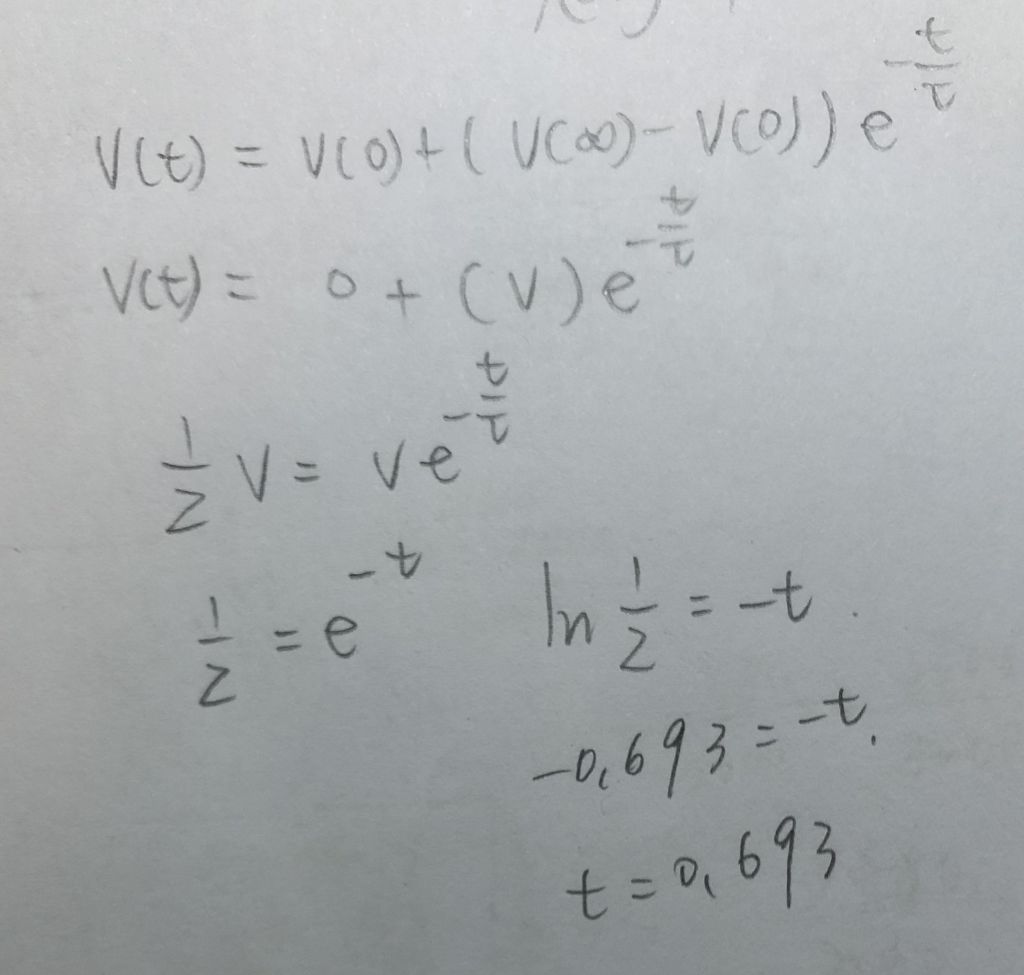 V(t) = V(0) + ( V(∞) - V(0) ) e^{-t/τ}
V(t) = 0 + (V) e^{-t/τ}
1/2 V = V e^{-t/τ}
1/2 = e^{-t}
ln 1/2 = -t.
-0.693 = -t.
t = 0.693